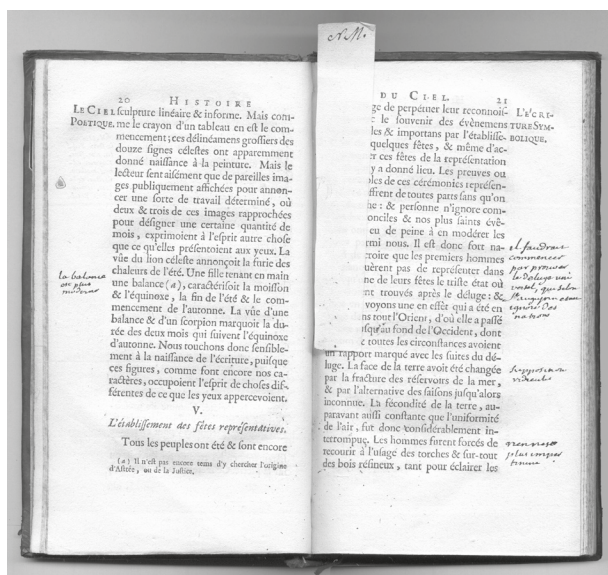 N.M.
20 HISTOIRE
LE CIEL POETIQUE.
sculpture linéaire & informe. Mais com-
me le crayon d'un tableau en est le com-
mencement; ces délinéamens grossiers des
douze signes célestes ont apparemment
donné naissance à la peinture. Mais le
lecteur sent aisément que de pareilles ima-
ges publiquement affichées pour annon-
cer une sorte de travail déterminé, où
deux & trois de ces images rapprochées
pour désigner une certaine quantité de
mois, exprimoient à l'esprit autre chose
que ce qu'elles présentoient aux yeux. La
vûe du lion céleste annonçoit la furie des
chaleurs de l'été. Une fille tenant en main
une balance (a), caractérisoit la moisson
& l'équinoxe, la fin de l'été & le com-
mencement de l'automne. La vûe d'une
balance & d'un scorpion marquoit la du-
rée des deux mois qui suivent l'équinoxe
d'automne. Nous touchons donc sensible-
ment à la naissance de l'écriture, puisque
ces figures, comme font encore nos ca-
ractères, occupoient l'esprit de choses dif-
férentes de ce que les yeux appercevoient.
V.
L'établissement des fêtes représentatives.
Tous les peuples ont été & sont encore
(a) Il n'est pas encore tems d'y chercher l'origine
d'Astrée, ou de la Justice.
la balance
est plus
moderne
DU CIEL. 21
L'ÉCRI-
TURE SYM-
BOLIQUE.
ge de perpétuer leur reconnois-
le souvenir des évènemens
les & importans par l'établisse-
quelques fêtes, & même d'ac-
er ces fêtes de la représentation
y a donné lieu. Les preuves ou
ples de ces cérémonies représen-
ffrent de toutes parts sans qu'on
he: & personne n'ignore com-
onciles & nos plus saints évê-
eu de peine à en modérer les
rmi nous. Il est donc fort na-
croire que les premiers hommes
uèrent pas de représenter dans
ne de leurs fêtes le triste état où
nt trouvés après le déluge: &
voyons une en effèt qui a été en
ns tout l'Orient, d'où elle a passé
jusqu'au fond de l'Occident, dont
toutes les circonstances avoient
un rapport marqué avec les suites du dé-
luge. La face de la terre avoit été changée
par la fracture des réservoirs de la mer,
& par l'alternative des saisons jusqu'alors
inconnue. La fécondité de la terre, au-
paravant aussi constante que l'uniformité
de l'air, fut donc considérablement in-
terrompue. Les hommes furent forcés de
recourir à l'usage des torches & sur-tout
des bois résineux, tant pour éclairer les
il faudrait
commencer
par prouver
le deluge uni
versel, qui selon
nations
supposition
ridicule